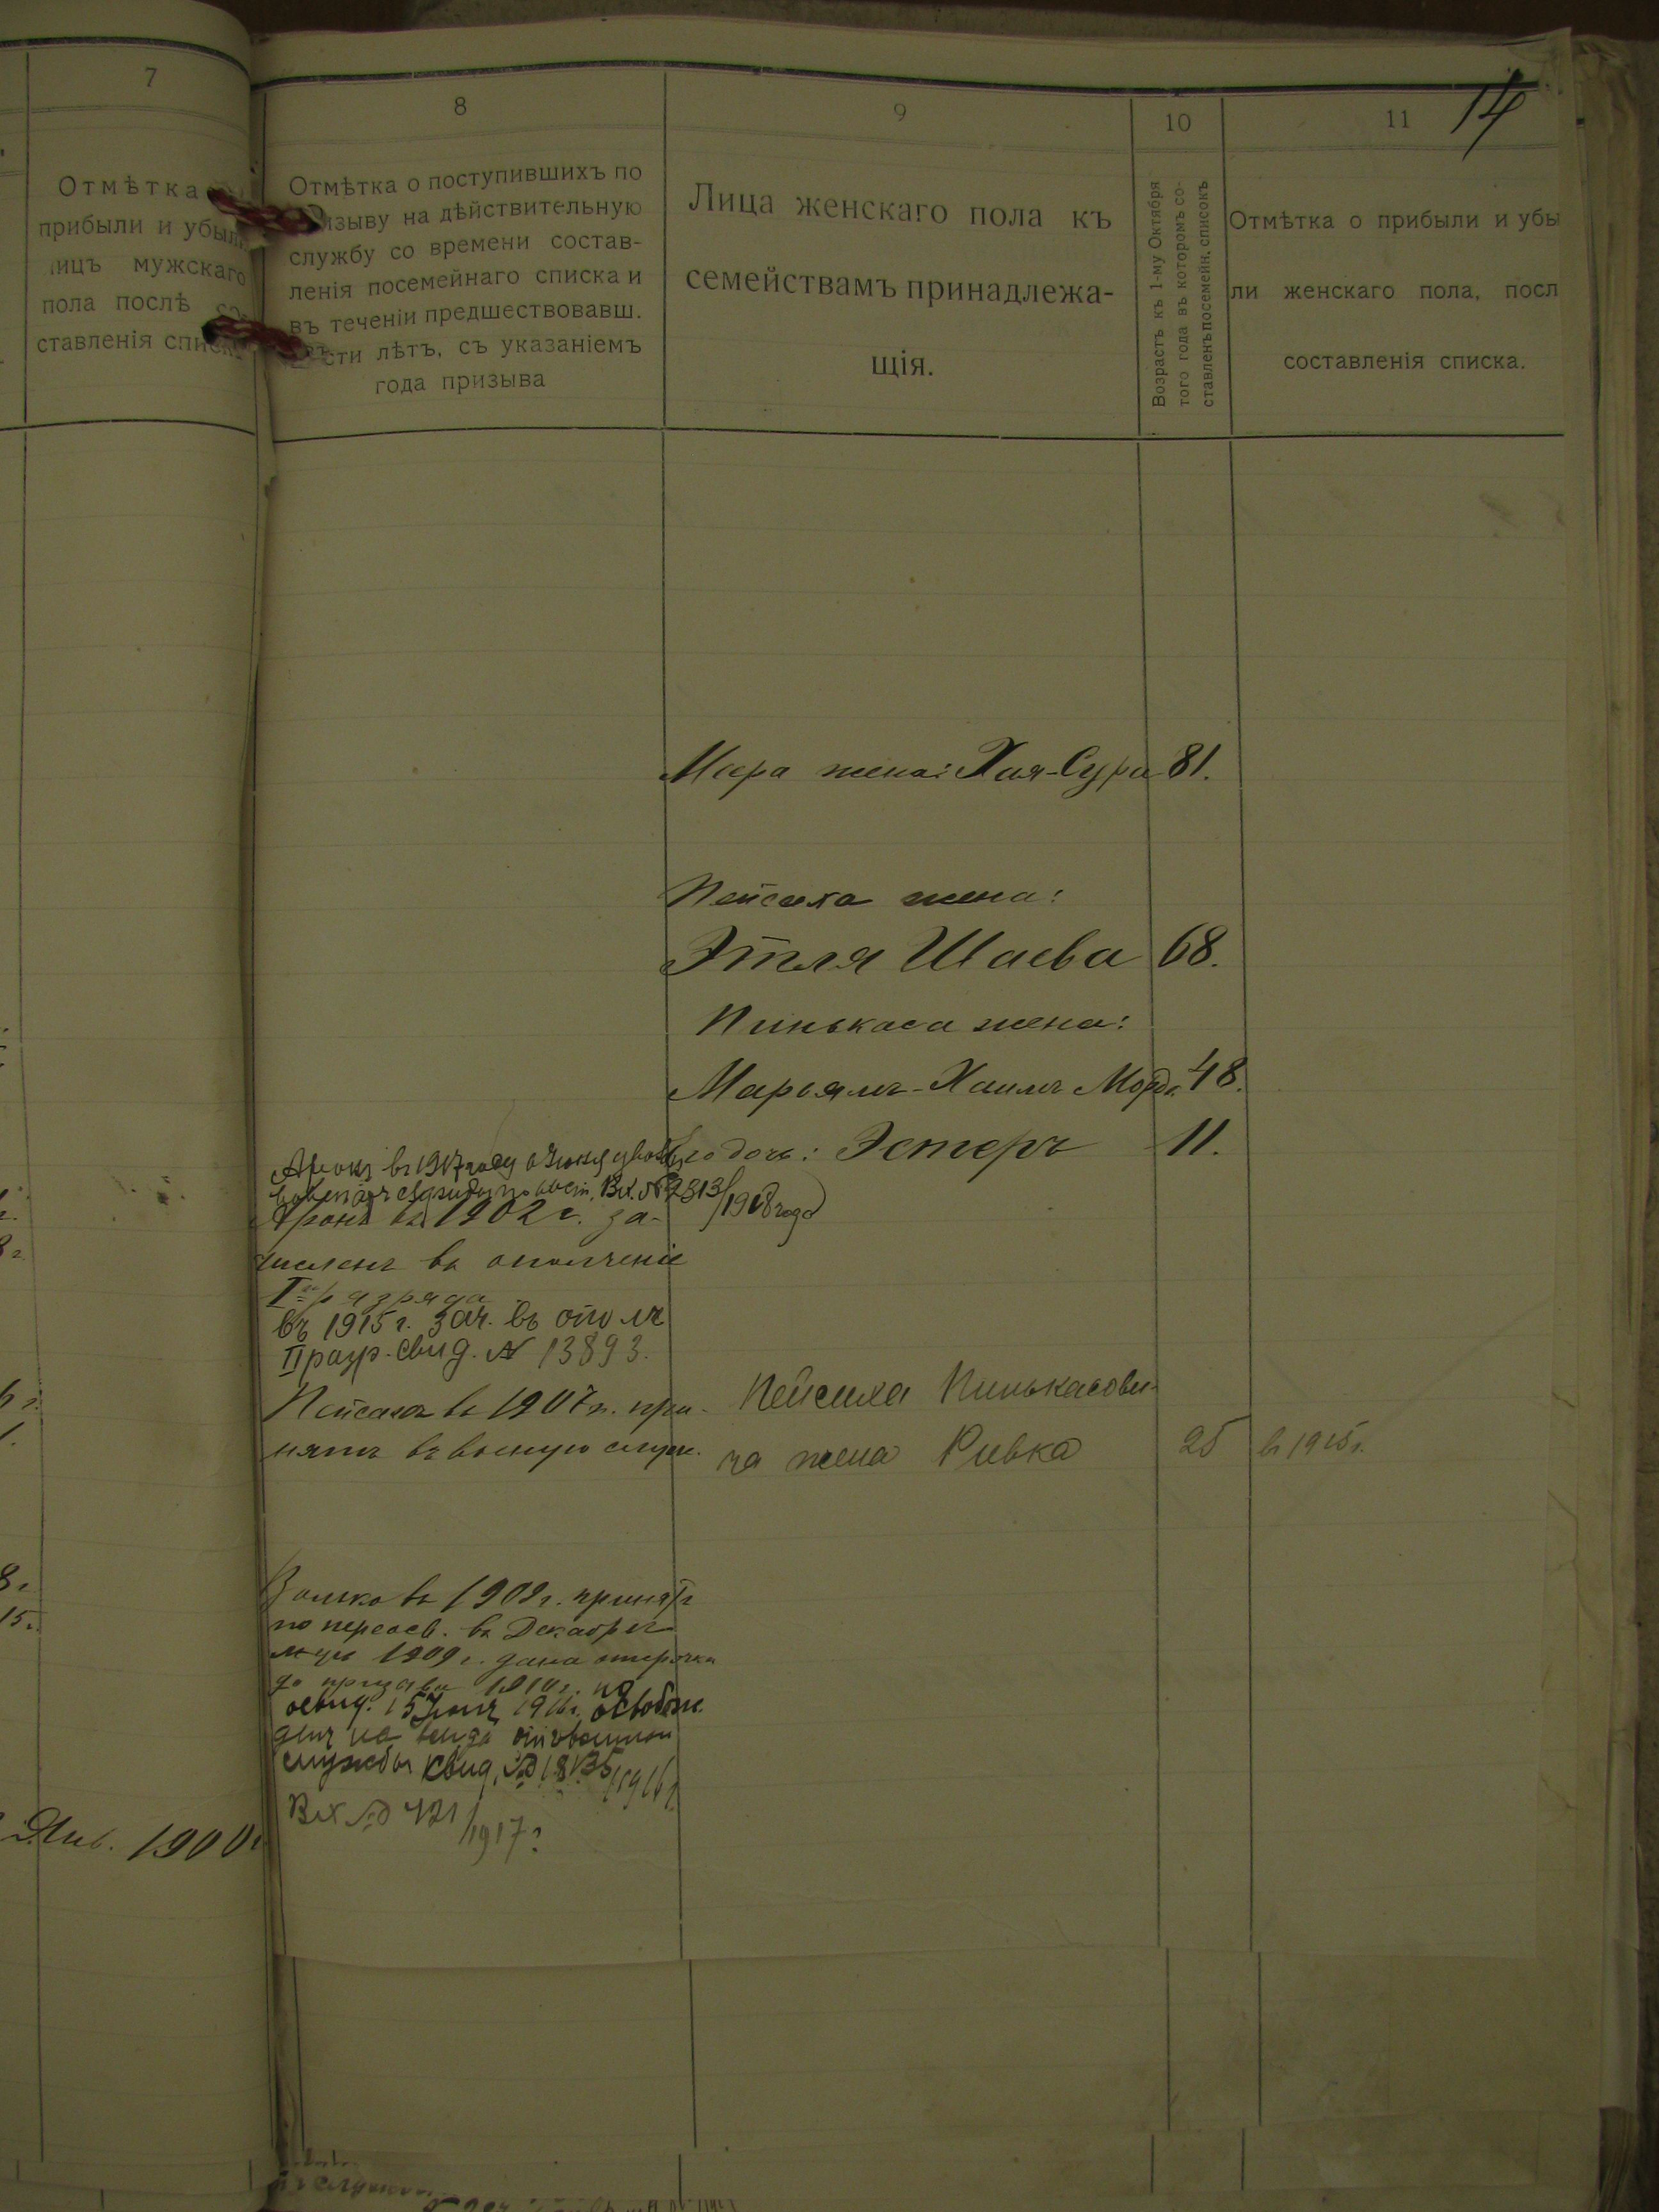 7
8
9
10
11
14
Отмѣтка
прибыли и убыли
лицъ мужскаго
пола послѣ со-
ставленія списка
Отмѣтка о поступившихъ по
призыву на дѣйствительную
службу со времени состав-
ленія посемейнаго списка и
въ теченіи предшествовавш.
шести лѣтъ, съ указаніемъ
года призыва
Лица женскаго пола къ
семействамъ принадлежа-
щія.
Возрастъ къ 1-му Октября
того года въ которомъ со-
ставленъ посемейн. списокъ
Отмѣтка о прибыли и убы
ли женскаго пола, посл
составленія списка.
Меера жена: Хая-Сура 81.
Пейсаха жена:
Этля Шаева 68.
Пинькаса жена:
Марьямъ-Хаимъ Морд. 48.
его дочь: Эстеръ 11.
Аронъ въ 1917 году
Вх. № 2313/1918 года
Аронъ въ 1902 г. за-
численъ въ ополченіе
I го разряда
въ 1915 г. зач. въ ополч
II разр. свид. № 13893.
Пейсахъ въ 1907 г. при-
нятъ въ военную служ.
Пейсаха Пинькасови-
ча жена Ривка 25 въ 1915 г.
Волько въ 1909 г. принятъ
по переосв. въ Декабрѣ
м-цѣ 1909 г. дана отсрочка
до призыва 1910 г. по
освид. 15 1916 г. освобож
денъ на всегда отъ военной
службы свид. № 1835/1916 г.
Вх № 421/1917 г.
Янв. 1900 г.